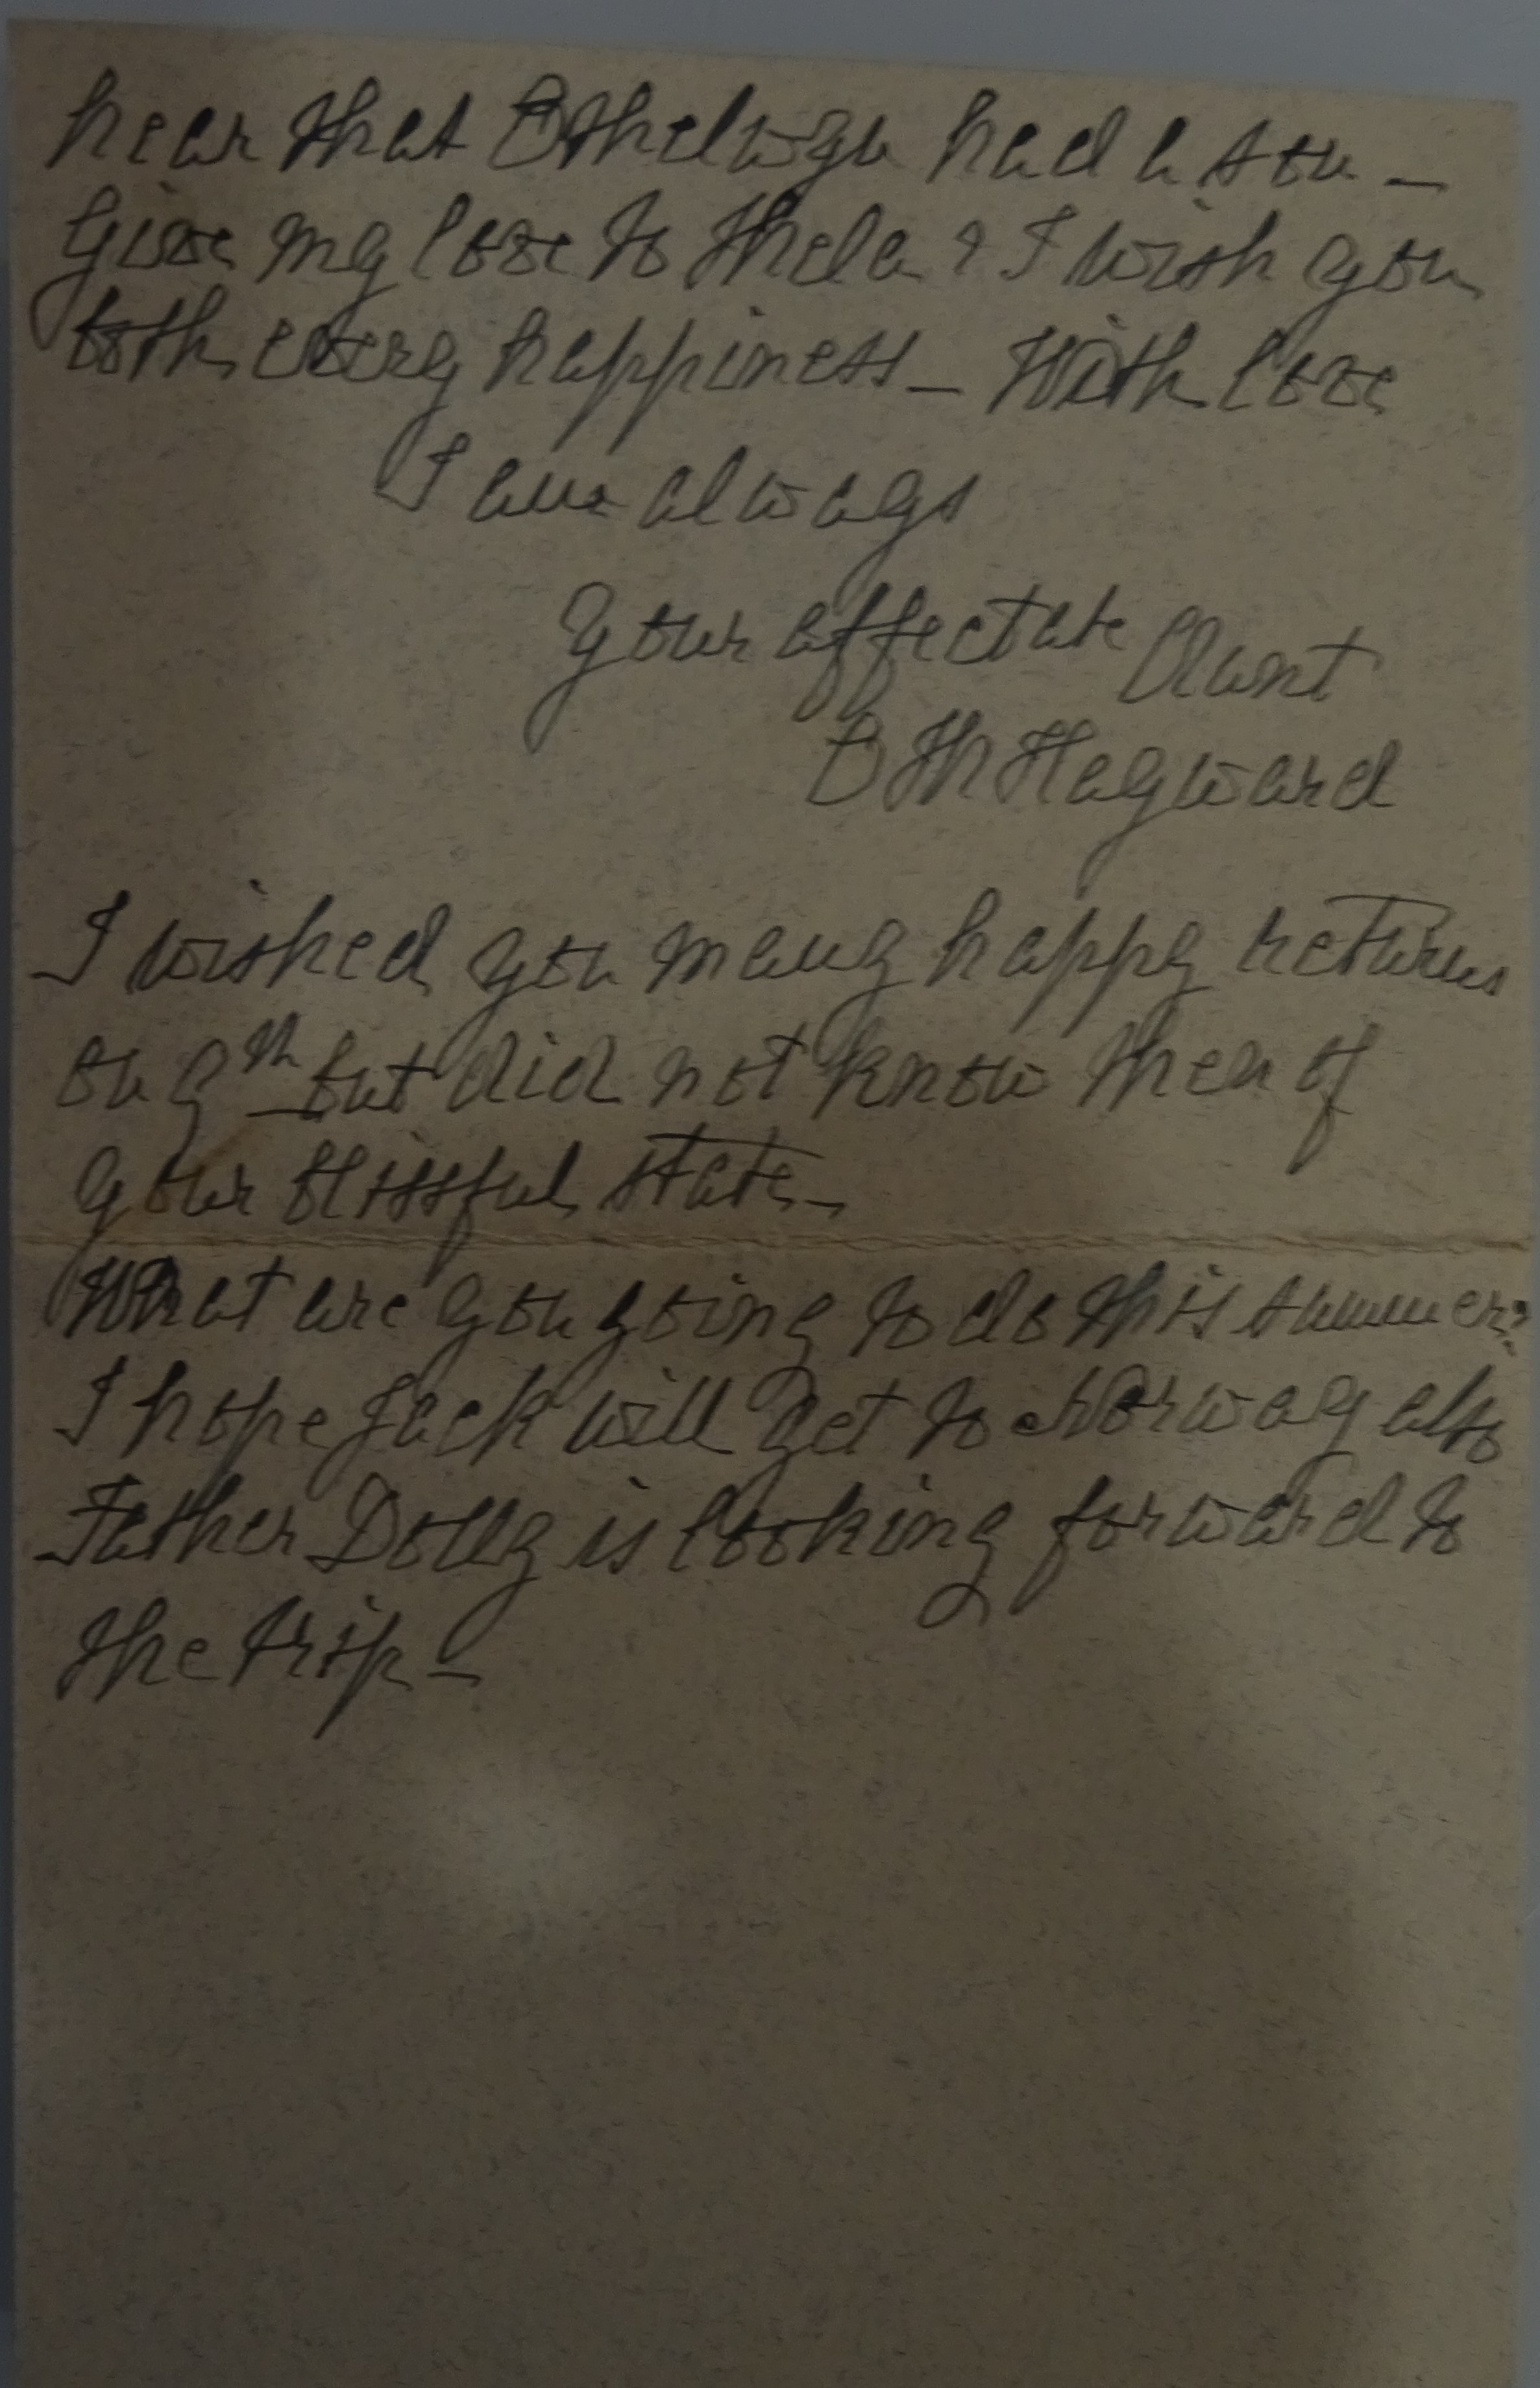 hear that Ethelwyn had a son –
Give my love to Thela & I wish you
both every happiness – With love
I am always
Your affectate Aunt
E M Hayward
I wished you many happy returns
on 9th but did not know then of
your blissful state –
What are you going to do this summer?
I hope Jack will get to Norway also
Father Dolly is looking forward to
the trip –